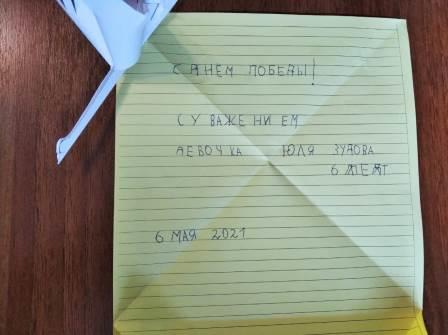 С ДНЕМ ПОБЕДЫ!
С УВАЖЕНИЕМ
ДЕВОЧКА ЮЛЯ ЗУДОВА
6 ЛЕТ
6 МАЯ 2021